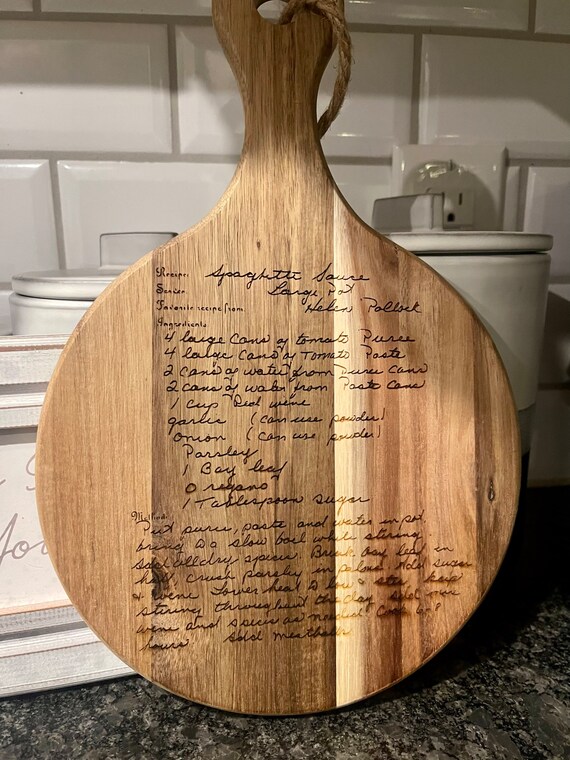 Recipe: Spaghetti Sauce
Serves: Large Pot
Favorite recipe from: Helen Pollock
Ingredients
4 large Cans of tomato Puree
4 large Cans of Tomato Paste
2 cans of water from Puree cans
2 cans of water from Paste cans
1 Cup Red wine
garlic (can use powder)
onion (can use powder)
Parsley
1 Bay leaf
Oregano
1 Tablespoon sugar
Method:
Put puree, paste and water in pot.
bring to slow boil while stirring.
add all dry spices. Break bay leaf in
half. Crush parsley in palms. Add sugar
& wine. Lower heat to low &
stirring throughout the day. add more
wine and spices as needed. Cook 6-8
hours add meatballs